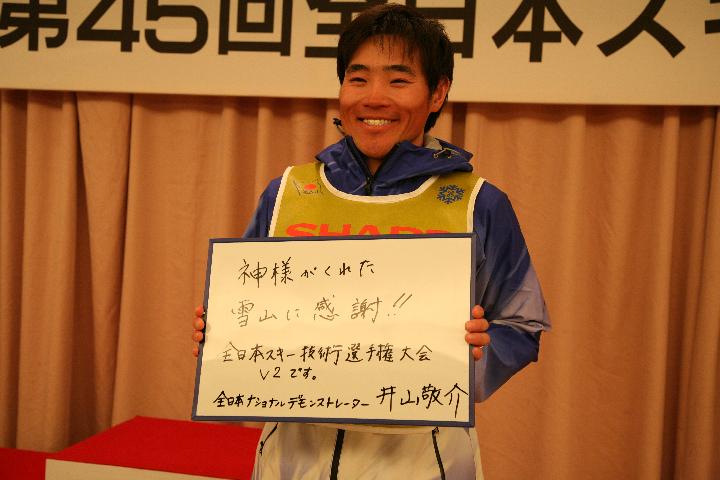 第45回全日本スキ
SHARP
神様がくれた
雪山に感謝!!
全日本スキー技術選手権大会
V2です。
全日本ナショナルデモンストレーター 井山敬介